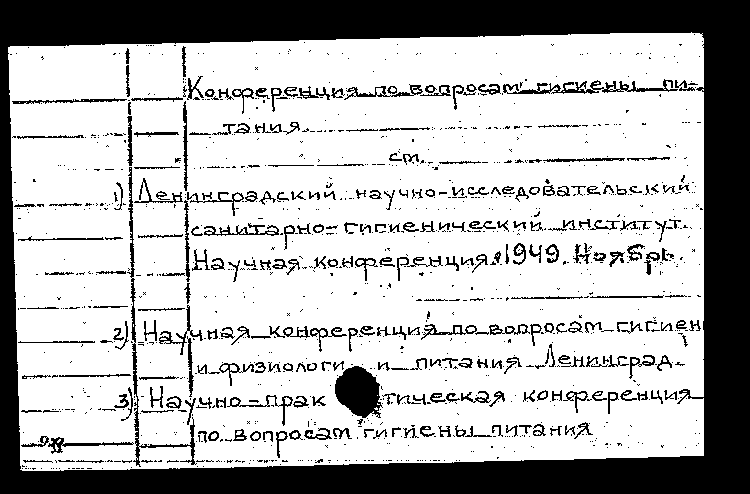 Конференция по вопросам гигиены пи-
тания.
см.
1) Ленинградский научно-исследовательский
санитарно-гигиенический институт.
Научная конференция. 1949. Ноябрь.
2) Научная конференция по вопросам гигиен
и физиологи и питания Ленинград.
3) Научно-прак тическая конференция
по вопросам гигиены питания